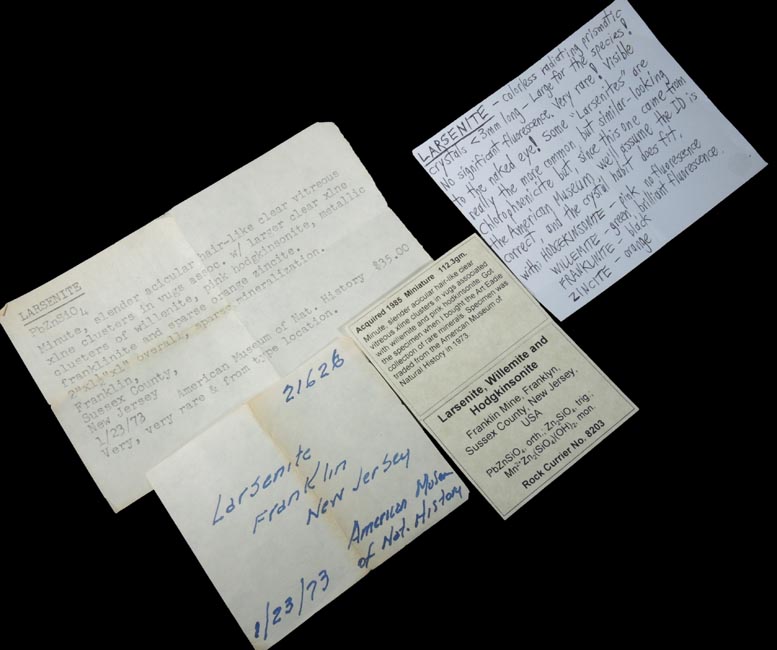 LARSENITE
PbZnSiO4
Minute, slender acicular hair-like clear vitreous
xlne clusters in vugs assoc. w/ larger clear xlne
clusters of willenite, pink hodgkinsonite, metallic
franklinite and sparse orange zincite.
2"x1½"x1" overall, sparse mineralization.
Franklin,
Sussex County,
New Jersey American Museum of Nat. History $35.00
1/23/73
Very, very rare & from type location.
21626
Larsenite
Franklin
New Jersey
American Museum
of Nat. History
1/23/73
Acquired 1985 Miniature 112.3gm.
Minute, slender acicular hair-like clear
vitreous xlne clusters in vugs associated
with willemite and pink hodgkinsonite. Got
the specimen when I bought the Art Eadie
collection of rare minerals. Specimen was
traded from the American Museum of
Natural History in 1973.
Larsenite, Willemite and
Hodgkinsonite
Franklin Mine, Franklyn,
Sussex County, New Jersey,
USA
PbZnSiO4, orth., Zn2SiO4 trig.,
Mn2+Zn2(SiO4)(OH)2, mon.
Rock Currier No. 8203
LARSENITE – colorless radiating prismatic
crystals <3mm long – Large for the species!
No significant fluorescence. Very rare! Visible
to the naked eye! Some "Larsenites" are
really the more common, but similar-looking
Chlorophoenicite but, since this one came from
the American Museum, we'll assume the ID is
correct, and the crystal habit does fit.
with: HODGKINSONITE – pink no fluorescence
WILLEMITE – green, brilliant fluorescence.
FRANKLINITE – black
ZINCITE – orange